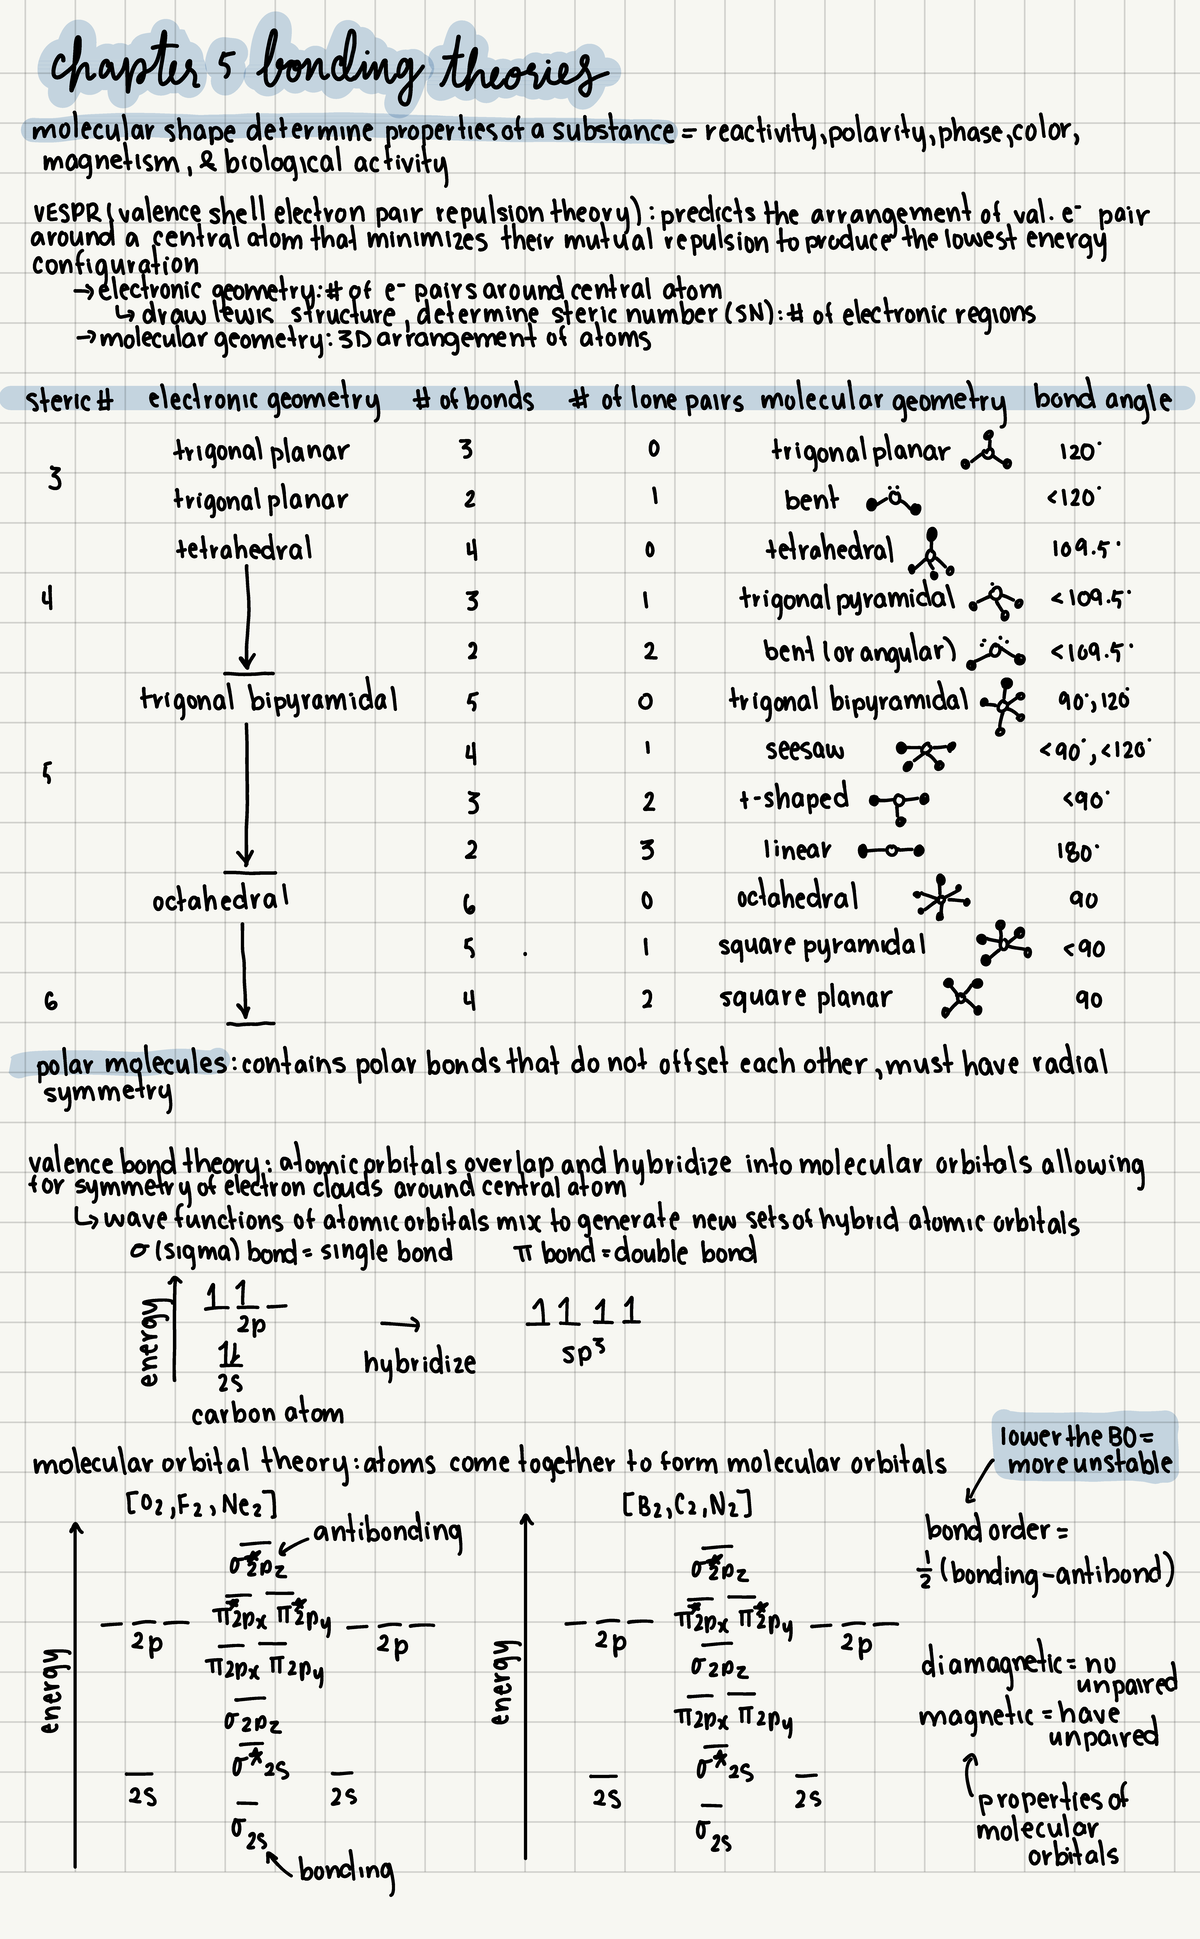 chapter 5 bonding theories
molecular shape determine properties of a substance = reactivity, polarity, phase, color,
magnetism, & biological activity
VESPR (valence shell electron pair repulsion theory): predicts the arrangement of val. e⁻ pair
around a central atom that minimizes their mutual repulsion to produce the lowest energy
configuration
→ electronic geometry: # of e⁻ pairs around central atom
↳ draw lewis structure, determine steric number (SN): # of electronic regions
→ molecular geometry: 3D arrangement of atoms
steric # electronic geometry # of bonds # of lone pairs molecular geometry bond angle
3
trigonal planar 3 0 trigonal planar 120°
trigonal planar 2 1 bent <120°
4
tetrahedral 4 0 tetrahedral 109.5°
3 1 trigonal pyramidal <109.5°
2 2 bent (or angular) <109.5°
5
trigonal bipyramidal 5 0 trigonal bipyramidal 90°, 120°
4 1 seesaw <90°, <120°
3 2 t-shaped <90°
2 3 linear 180°
6
octahedral 6 0 octahedral 90
5 1 square pyramidal <90
4 2 square planar 90
polar molecules: contains polar bonds that do not offset each other, must have radial
symmetry
valence bond theory: atomic orbitals overlap and hybridize into molecular orbitals allowing
for symmetry of electron clouds around central atom
↳ wave functions of atomic orbitals mix to generate new sets of hybrid atomic orbitals
σ (sigma) bond = single bond π bond = double bond
energy
1 1 _
2p
1⇂
2s
carbon atom
→
hybridize
1 1 1 1
sp³
lower the BO =
more unstable
molecular orbital theory: atoms come together to form molecular orbitals
[O₂, F₂, Ne₂]
energy
antibonding
σ*2pz
π*2px π*2py
2p 2p
π2px π2py
σ2pz
σ*2s
2s 2s
σ2s
bonding
[B₂, C₂, N₂]
energy
σ*2pz
π*2px π*2py
2p 2p
σ2pz
π2px π2py
σ*2s
2s 2s
σ2s
bond order =
½ (bonding - antibond)
diamagnetic = no
unpaired
magnetic = have
unpaired
properties of
molecular
orbitals